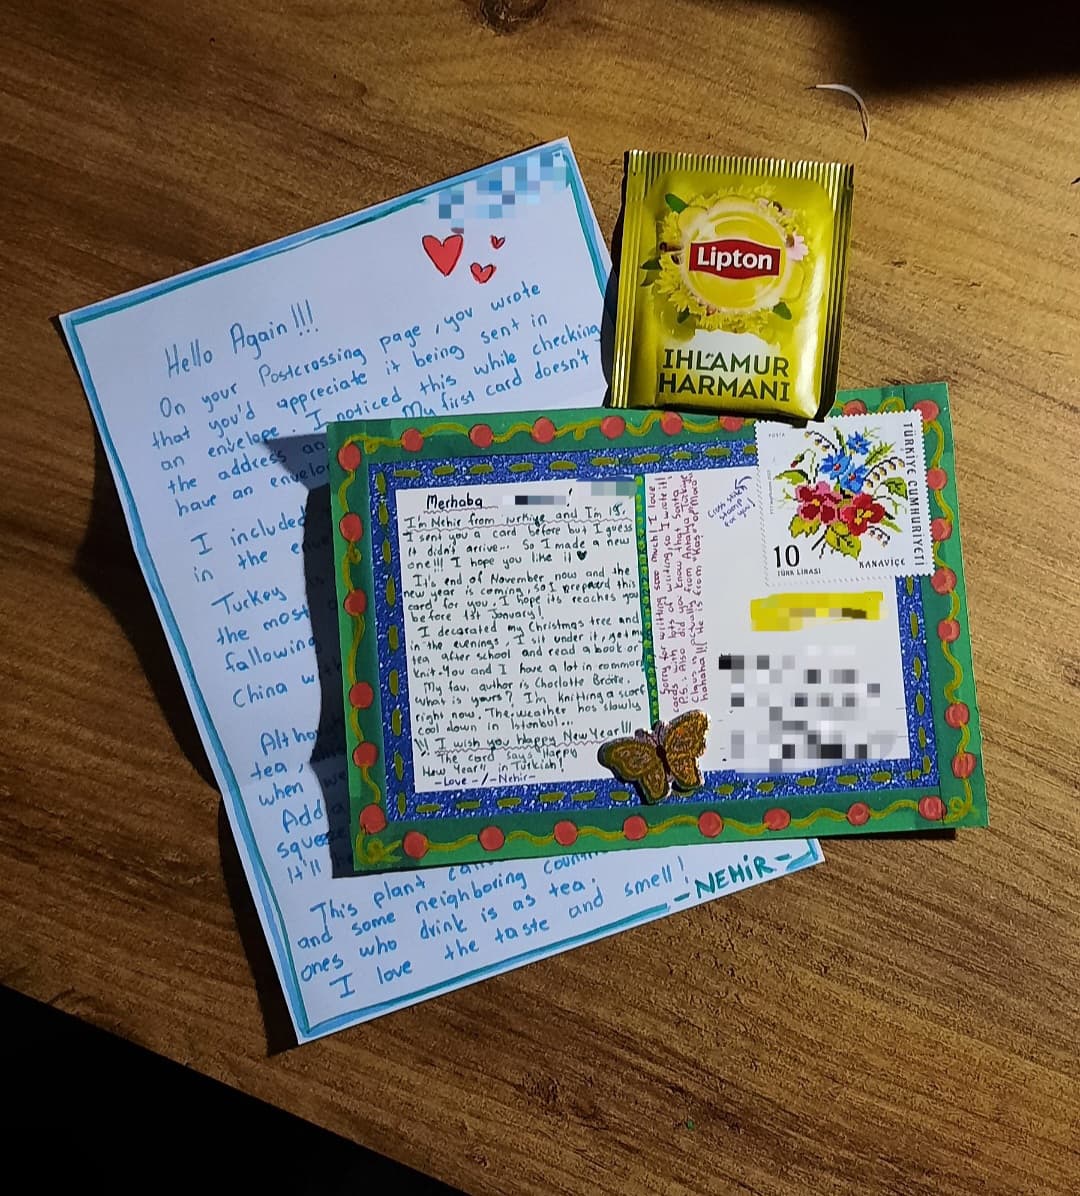 Hello Again!!!
On your Postcrossing page, you wrote
that you'd appreciate it being sent in
an envelope. I noticed this while checking
the address an
My first card doesn't
have an envelo
I included
in the
Turkey
the most
fallowing
China
tea,
when
Add
squee
It'll
This plant
and some neighboring
ones who drink is as tea.
I love the taste and smell!
-NEHİR-
Lipton
IHLAMUR
HARMANI
Merhaba !
I'm Nehir from Türkiye and I'm 18.
I sent you a card before but I guess
it didn't arrive... So I made a new
one!!! I hope you like it
It's end of November now and the
new year is coming, so I prepared this
card for you. I hope its reaches you
before 1st January!
I decorated my Christmas tree and
in the evenings, I sit under it, get my
tea after school and read a book or
knit. You and I have a lot in common
My fav. author is Charlotte Bronte.
What is yours? I'm knitting a scarf
right now. The weather has slowly
cool down in Istanbul...
!!! I wish you Happy New Year!!!
The card says "Happy
New Year" in Turkish!
-Love-/-Nehir-
Sorry for writing sooo much! I love
cards with lots of writing, so I wrote it!
P.S.: Also did you know that Santa
Claus is actually from Antalya, Türkiye
hahaha!!! He is from
Cross stitch
stamp
for you!
POSTA
TÜRKİYE CUMHURİYETİ
10
TÜRK LİRASI
KANAVİÇE